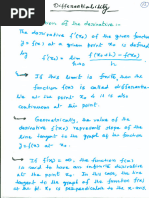 Differentiability
of the derivative :-
The derivative f'(x₀) of the given function
y = f(x) at a given point x₀ is defined
by f'(x₀) = lim h→0 f(x₀+h) - f(x₀) / h
If this limit is finite, then
function f(x) is called differentiable
at the point x₀ & it is also
continuous at this point.
Geometrically, the value of the
derivative f'(x₀) represents slope of the
line tangent to the graph of the function
y = f(x) at point x₀.
If the function f(x)
is said to have an infinite derivative
at the point x₀. In this case, the line
tangent to the graph of the function
at pt. x₀ is perpendicular to the x-axis.